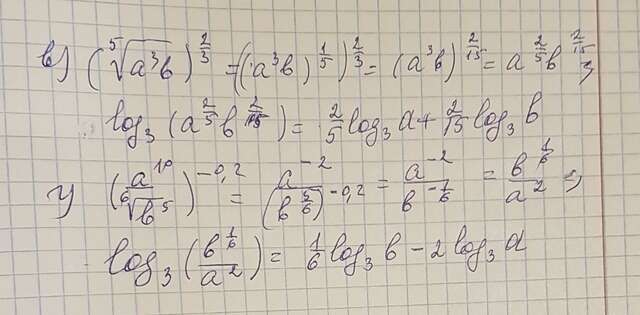 в) (⁵√(a³b))^(2/3) = ((a³b)^(1/5))^(2/3) = (a³b)^(2/15) = a^(2/5) b^(2/15);
log₃(a^(2/5) b^(2/15)) = 2/5 log₃ a + 2/15 log₃ b
г) (a¹⁰/⁶√(b⁵))^(-0,2) = a^(-2)/(b^(5/6))^(-0,2) = a^(-2)/b^(-1/6) = b^(1/6)/a²;
log₃(b^(1/6)/a²) = 1/6 log₃ b - 2 log₃ a